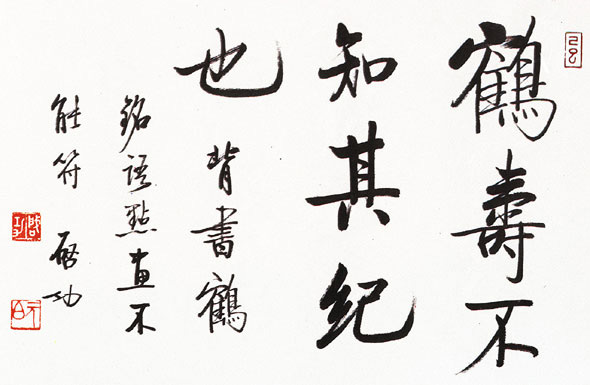 鶴壽不
知其紀
也 背書鶴
銘語點畫不
能符 啓功
啓功
元白